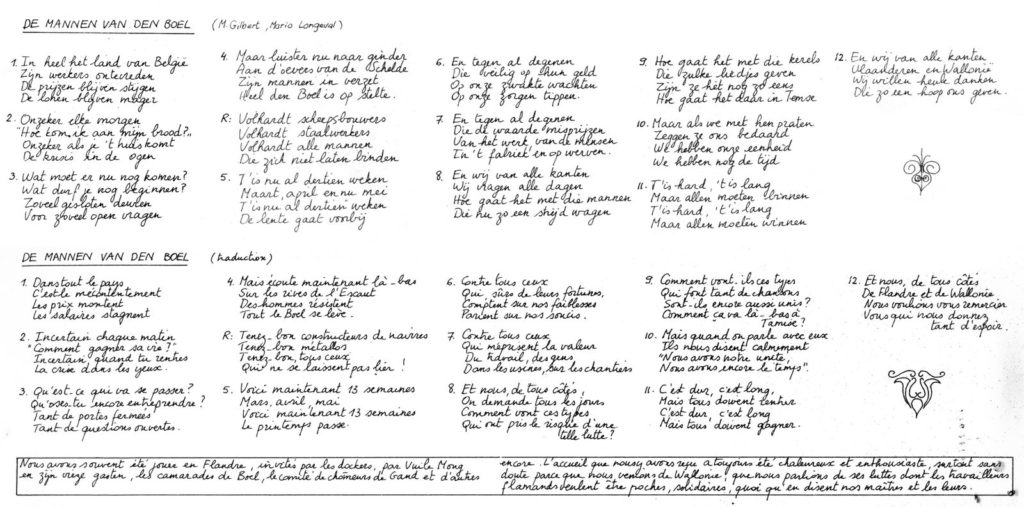 DE MANNEN VAN DEN BOEL (M. Gilbert, Mario Longeval)
1. In heel het land van België
Zijn werkers ontevreden
De prijzen blijven stijgen
De lonen blijven mager
2. Onzeker elke morgen
"Hoe kom ik aan mijn brood?"
Onzeker als je 't huis komt
De krisis in de ogen
3. Wat moet er nu nog komen?
Wat durf je nog beginnen?
Zoveel gesloten deuren
Voor zoveel open vragen
4. Maar luister nu naar ginder
Aan d'oevers van de Schelde
Zijn mannen in verzet
Heel den Boel is op stelte.
R: Volhardt scheepsbouwers
Volhardt staalwerkers
Volhardt alle mannen
Die zich niet laten binden
5. T'is nu al dertien weken
Maart, april en nu mei
T'is nu al dertien weken
De lente gaat voorbij
6. En tegen al degenen
Die veilig op hun geld
Op onze zwakte wachten
Op onze zorgen tippen.
7. En tegen al degenen
Die de waarde misprijzen
Van het werk, van de mensen
In 't fabriek en op werven.
8. En wij van alle kanten
Wij vragen alle dagen
Hoe gaat het met die mannen
Die nu zo een strijd wagen
9. Hoe gaat het met die kerels
Die zulke liedjes geven
Zijn ze het nog zo eens
Hoe gaat het daar in Temse
10. Maar als we met hen praten
Zeggen ze ons bedaard
We hebben onze eenheid
We hebben nog de tijd
11. T'is hard, 't is lang
Maar allen moeten binnen
T'is hard, 't is lang
Maar allen moeten winnen
12. En wij van alle kanten
Vlaanderen en Wallonië
Wij willen heute danken
Die zo een hoop ons geven.
DE MANNEN VAN DEN BOEL (traduction)
1. Dans tout le pays
C'est le mécontentement
Les prix montent
Les salaires stagnent
2. Incertain chaque matin
"Comment gagner sa vie?"
Incertain quand tu rentres
La crise dans les yeux.
3. Qu'est-ce qui va se passer?
Qu'oses-tu encore entreprendre?
Tant de portes fermées
Tant de questions ouvertes.
4. Mais écoute maintenant là-bas
Sur les rives de l'Escaut
Des hommes résistent
Tout le Boel se lève.
R: Tenez-bon constructeurs de navires
Tenez-bon métallos
Tenez-bon, tous ceux
Qui ne se laissent pas lier!
5. Voici maintenant 13 semaines
Mars, avril, mai
Voici maintenant 13 semaines
Le printemps passe.
6. Contre tous ceux
Qui, sûrs de leurs fortunes,
Comptent sur nos faiblesses
Parient sur nos soucis.
7. Contre tous ceux
Qui méprisent la valeur
Du travail, des gens
Dans les usines, sur les chantiers
8. Et nous, de tous côtés,
On demande tous les jours
Comment vont ces types
Qui ont pris le risque d'une
telle lutte?
9. Comment vont-ils ces types
Qui font tant de chansons
Sont-ils encore aussi unis?
Comment ça va là-bas à
Tamise?
10. Mais quand on parle avec eux
Ils nous disent calmement
"Nous avons notre unité,
Nous avons encore le temps".
11. C'est dur, c'est long,
Mais tous doivent rentrer
C'est dur, c'est long
Mais tous doivent gagner.
12. Et nous, de tous côtés
De Flandre et de Wallonie
Nous voulions vous remercier
Vous qui nous donnez
tant d'espoir.
Nous avons souvent été jouer en Flandre, invités par les dockers, par Vuile Mong
en zijn vieze gasten, les camarades de Boel, le comité de chômeurs de Gand et d'autres
encore. L'accueil que nous y avons reçu a toujours été chaleureux et enthousiaste, surtout sans
doute parce que nous venions de Wallonie, que nous parlions de ses luttes dont les travailleurs
flamands veulent être proches, solidaires, quoi qu'en disent nos maîtres et les leurs.